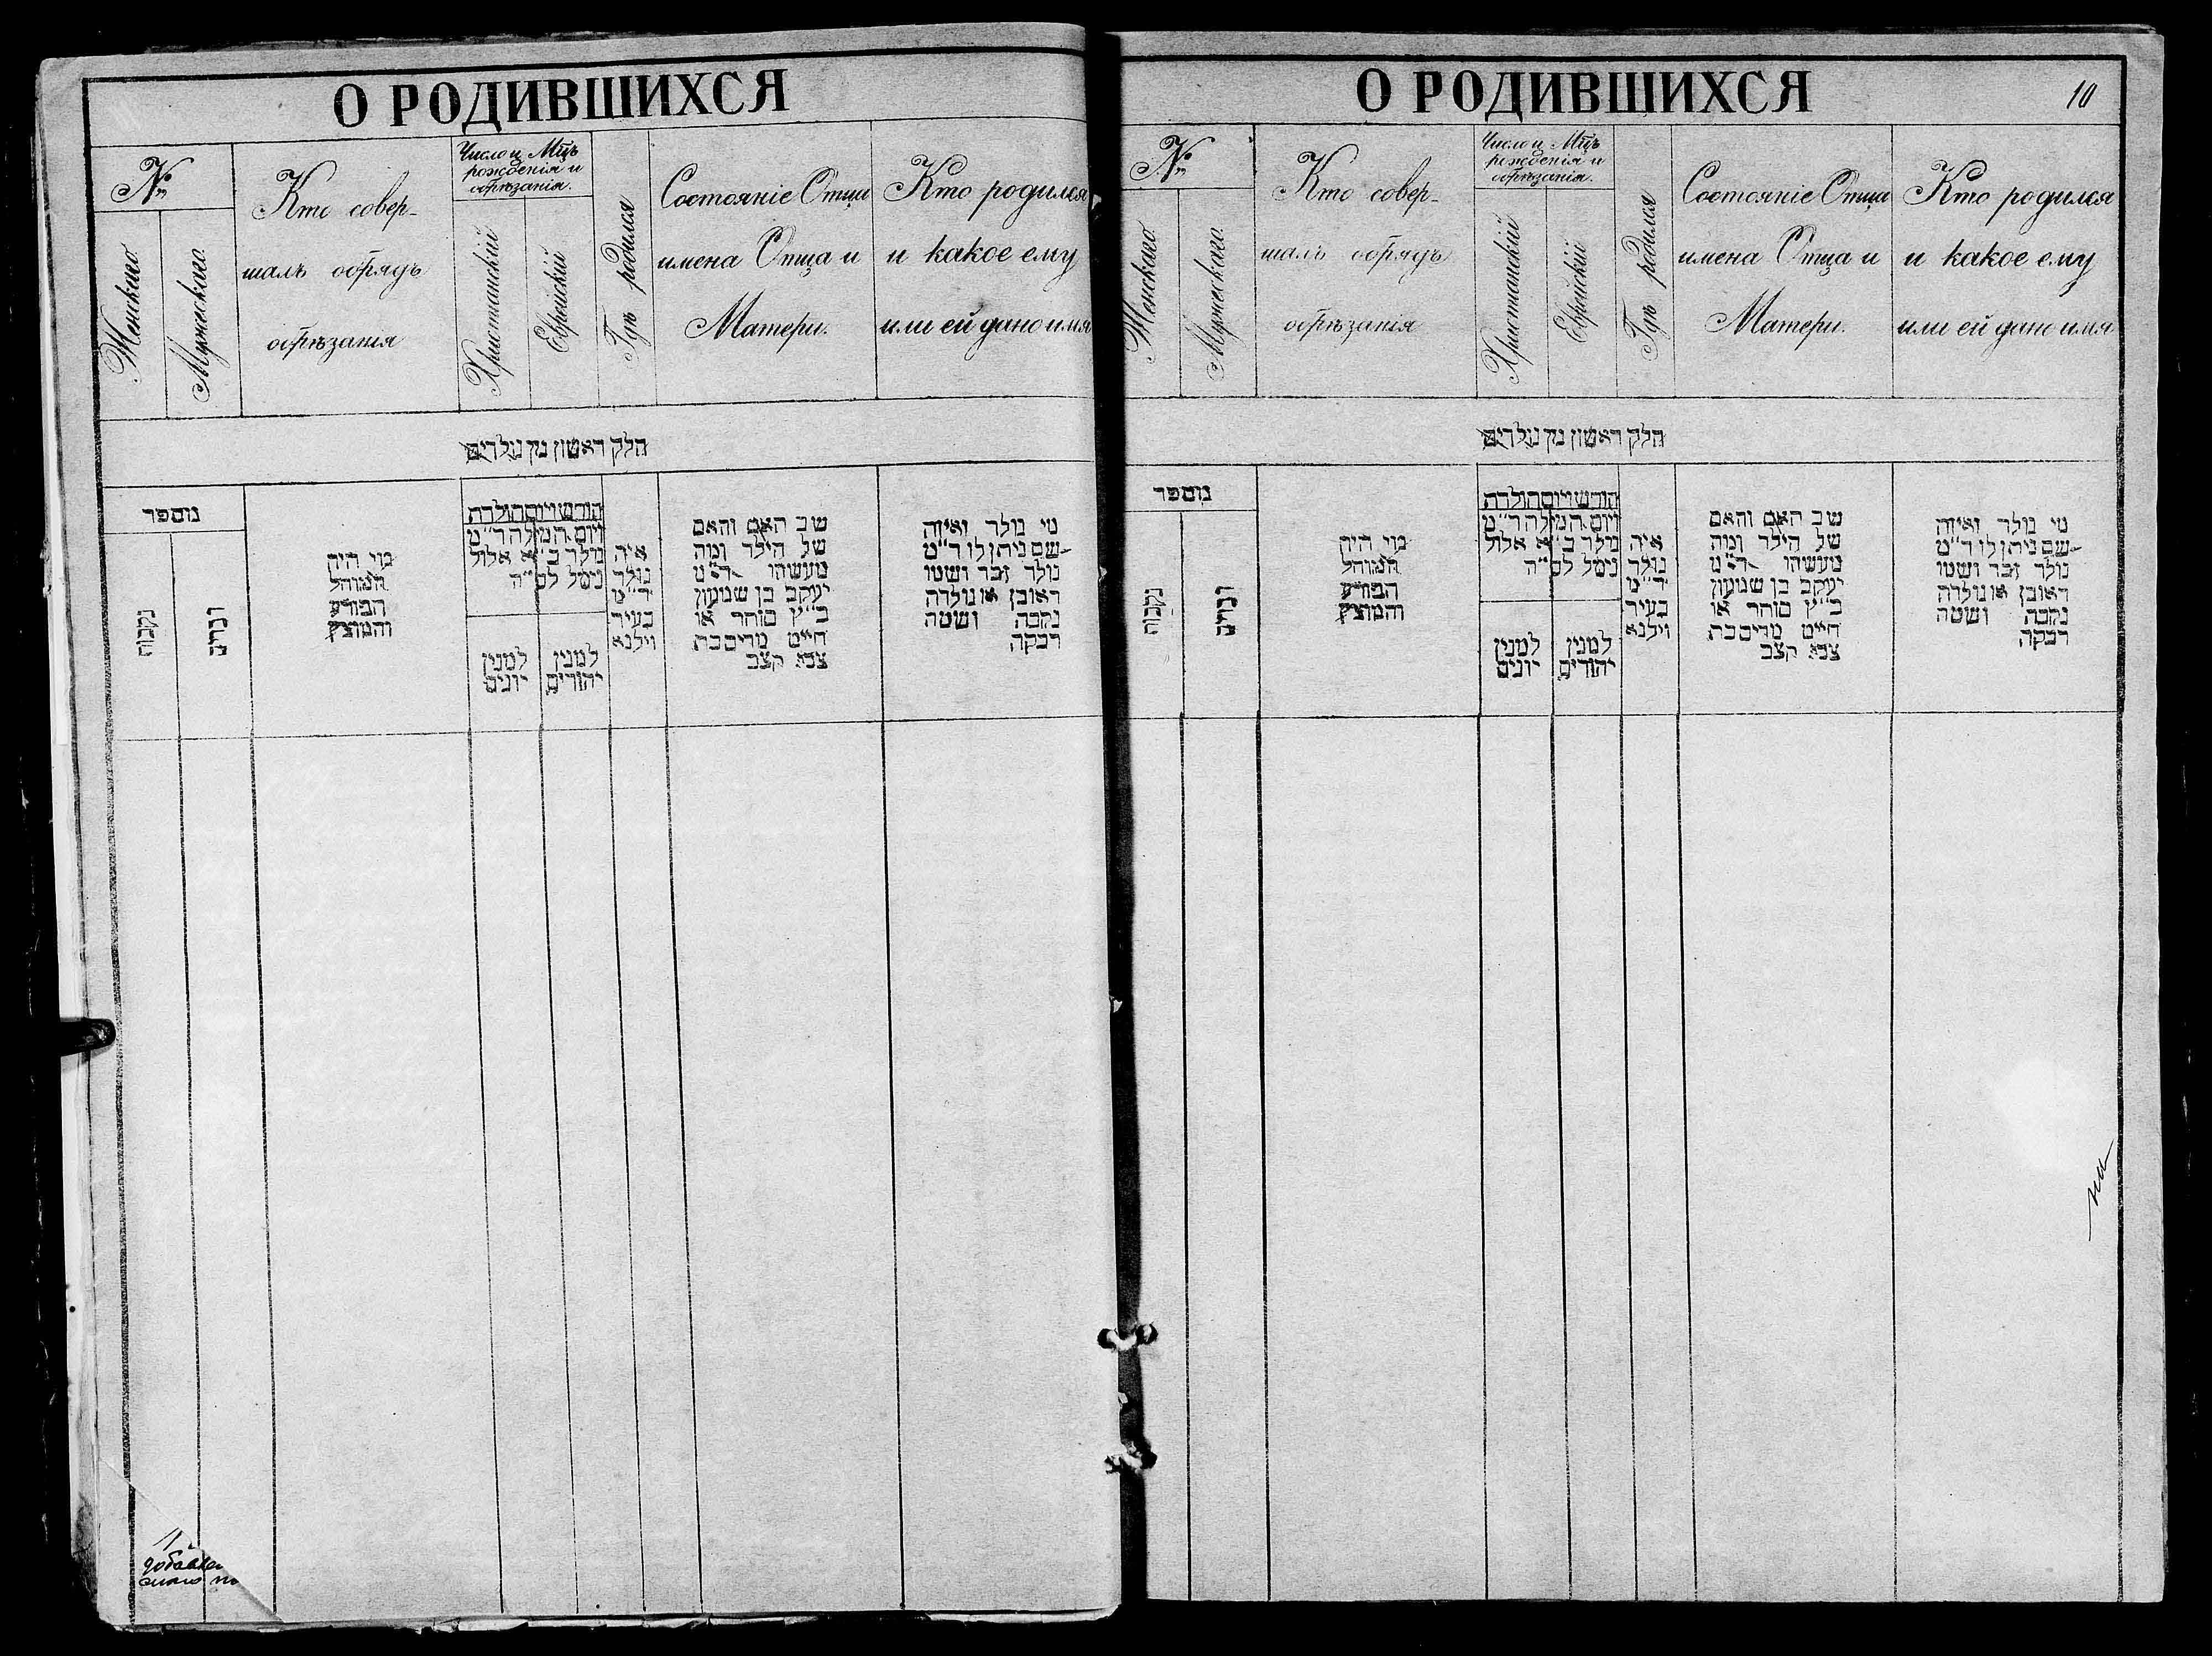 О РОДИВШИХСЯ
№
Женскаго
Мужескаго.
Кто совер-
шалъ обрядъ
обрѣзанія
Число и Мцъ
рожденія и
обрѣзанія.
Христіанскій
Еврейскій
Гдѣ родился
Состояніе Отца
имена Отца и
Матери.
Кто родился
и какое ему
или ей дано имя
חלק ראשון מן נולדים
מספר
נקבות
זכרים
מי היה
המוהל
הפורע
והמוצץ
חודש ויום הולדת
ויום המילה ד״מ
נולד ב׳ א אלול
נימל לט״ה
למנין
יונים
למנין
יהודים
איה
נולד
ד״מ
בעיר
ווילנא
שב האם והאם
של הילד ומה
מעשהו ד״מ
יעקב בן שמעון
כ״ץ סוחר או
חייט מרים בת
צבא קצב
מי נולד ואיזה
שם ניתן לו ד״מ
נולד זכר ושמו
ראובן או נולדה
נקבה ושמה
רבקה
11
О РОДИВШИХСЯ
10
№
Женскаго
Мужескаго.
Кто совер-
шалъ обрядъ
обрѣзанія
Число и Мцъ
рожденія и
обрѣзанія.
Христіанскій
Еврейскій
Гдѣ родился
Состояніе Отца
имена Отца и
Матери.
Кто родился
и какое ему
или ей дано имя
חלק ראשון מן נולדים
מספר
נקבות
זכרים
מי היה
המוהל
הפורע
והמוצץ
חודש ויום הולדת
ויום המילה ד״מ
נולד ב׳ א אלול
נימל לט״ה
למנין
יונים
למנין
יהודים
איה
נולד
ד״מ
בעיר
ווילנא
שב האם והאם
של הילד ומה
מעשהו ד״מ
יעקב בן שמעון
כ״ץ סוחר או
חייט מרים בת
צבא קצב
מי נולד ואיזה
שם ניתן לו ד״מ
נולד זכר ושמו
ראובן או נולדה
נקבה ושמה
רבקה